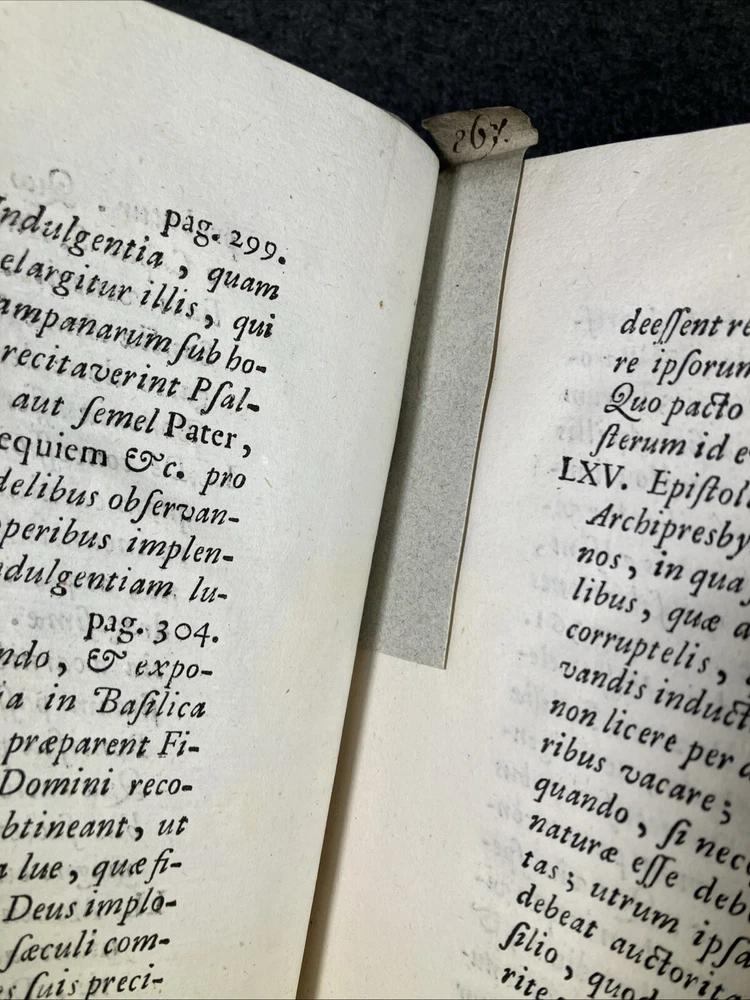 867.
pag. 299.
Indulgentia, quam
elargitur illis, qui
ampanarum ſub ho-
recitaverint Pſal-
aut ſemel Pater,
equiem &c. pro
delibus obſervan-
peribus implen-
ndulgentiam lu-
pag. 304.
ndo, & expo-
ia in Baſilica
præparent Fi-
Domini reco-
btineant, ut
a lue, quæ fi-
Deus implo-
ſæculi com-
s ſuis preci-
deeſſent re
re ipſorum
Quo pacto
ſterum id e
LXV. Epiſtol
Archipresby
nos, in qua
libus, quæ a
corruptelis,
vandis induct
non licere per a
ribus vacare;
quando, ſi nec
naturæ eſſe deb
tas; utrum ipſa
debeat auctorita
ſilio, quod
rite